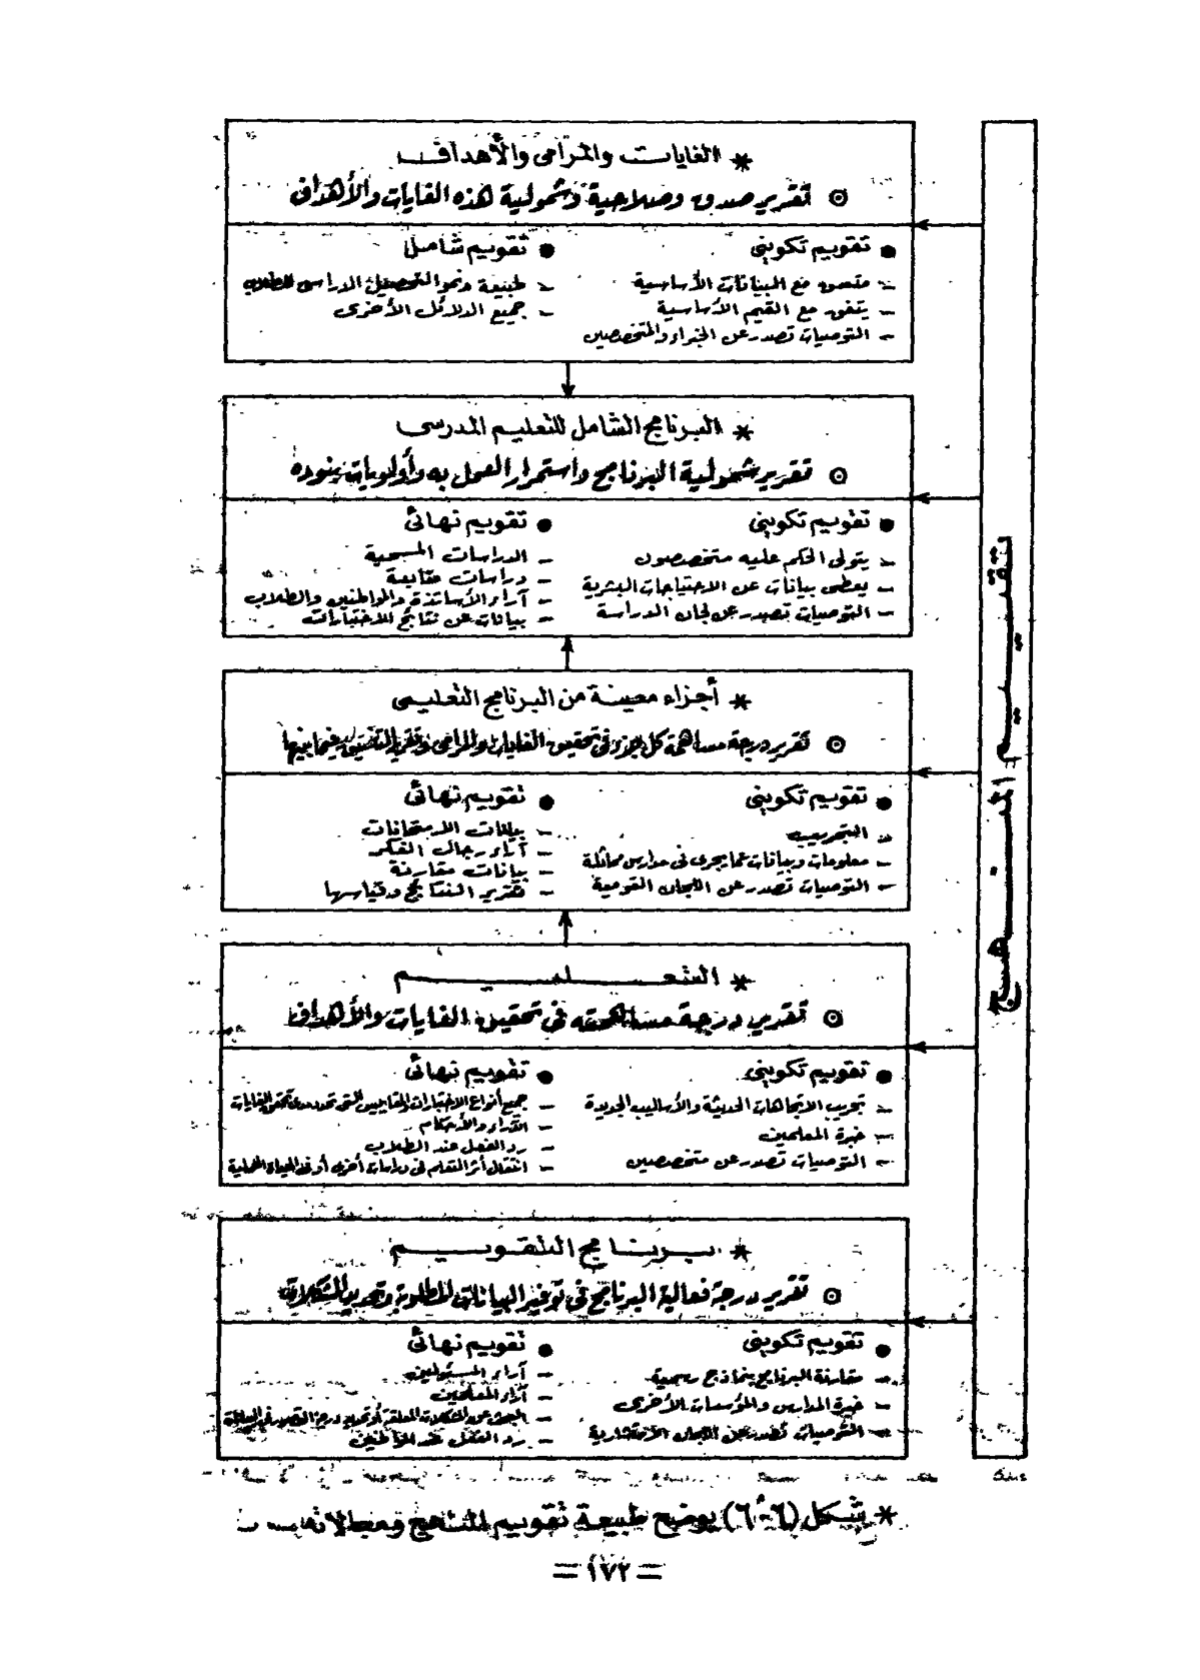 * الغايات والمرامى والأهداف
⊙ تقرير صدق وصلاحية وشمولية هذه الغايات والأهداف
● تقويم تكوينى
– يتفق مع القيم الأساسية
– التوصيات تصدر عن الخبراء والمتخصصين
● تقويم شامل
– طبيعة ونمو التحصيل الدراسى للطلاب
– جميع الدلائل الأخرى
* البرنامج الشامل للتعليم المدرسى
⊙ تقرير شمولية البرنامج واستمرار العمل به وأولويات بنوده
● تقويم تكوينى
– يتولى الحكم عليه متخصصون
– يعطى بيانات عن الاحتياجات البشرية
– التوصيات تصدر عن لجان الدراسة
● تقويم نهائى
– الدراسات المسحية
– دراسات متابعة
– آراء الأساتذة والمواطنين والطلاب
– بيانات عن نتائج الاختبارات
* أجزاء معينة من البرنامج التعليمى
⊙ تقرير درجة مساهمة كل جزء فى تحقيق الغايات والمرامى
● تقويم تكوينى
– التجريب
– معلومات وبيانات عما يجرى فى مدارس مماثلة
– التوصيات تصدر عن اللجان القومية
● تقويم نهائى
– بيانات الامتحانات
– آراء رجال الفكر
– بيانات مقارنة
– تقرير النتائج وقياسها
* التعليم
⊙ تقرير درجة مساهمته فى تحقيق الغايات والأهداف
● تقويم تكوينى
– تجريب الاتجاهات الحديثة والأساليب الجديدة
– خبرة المعلمين
– التوصيات تصدر عن متخصصين
● تقويم نهائى
– جميع أنواع الاختبارات والمقاييس التى تحدد مدى تحقق الغايات
– الآراء والأحكام
– رد الفعل عند الطلاب
– انتقال أثر التعلم فى دراسات أخرى أو فى الحياة العملية
* برنامج التقويم
⊙ تقرير درجة فعالية البرنامج فى توفير البيانات المطلوبة وتحديد المشكلات
● تقويم تكوينى
– مقارنة البرنامج بنماذج رسمية
– خبرة المدارس والمؤسسات الأخرى
– التوصيات تصدر عن اللجان الاستشارية
● تقويم نهائى
– آراء المسئولين
– آراء المعلمين
– رد الفعل عند المواطنين
تقييم المنهج
* شكل (٦-٦) يوضح طبيعة تقويم المناهج ومجالاته
= ١٧٢ =